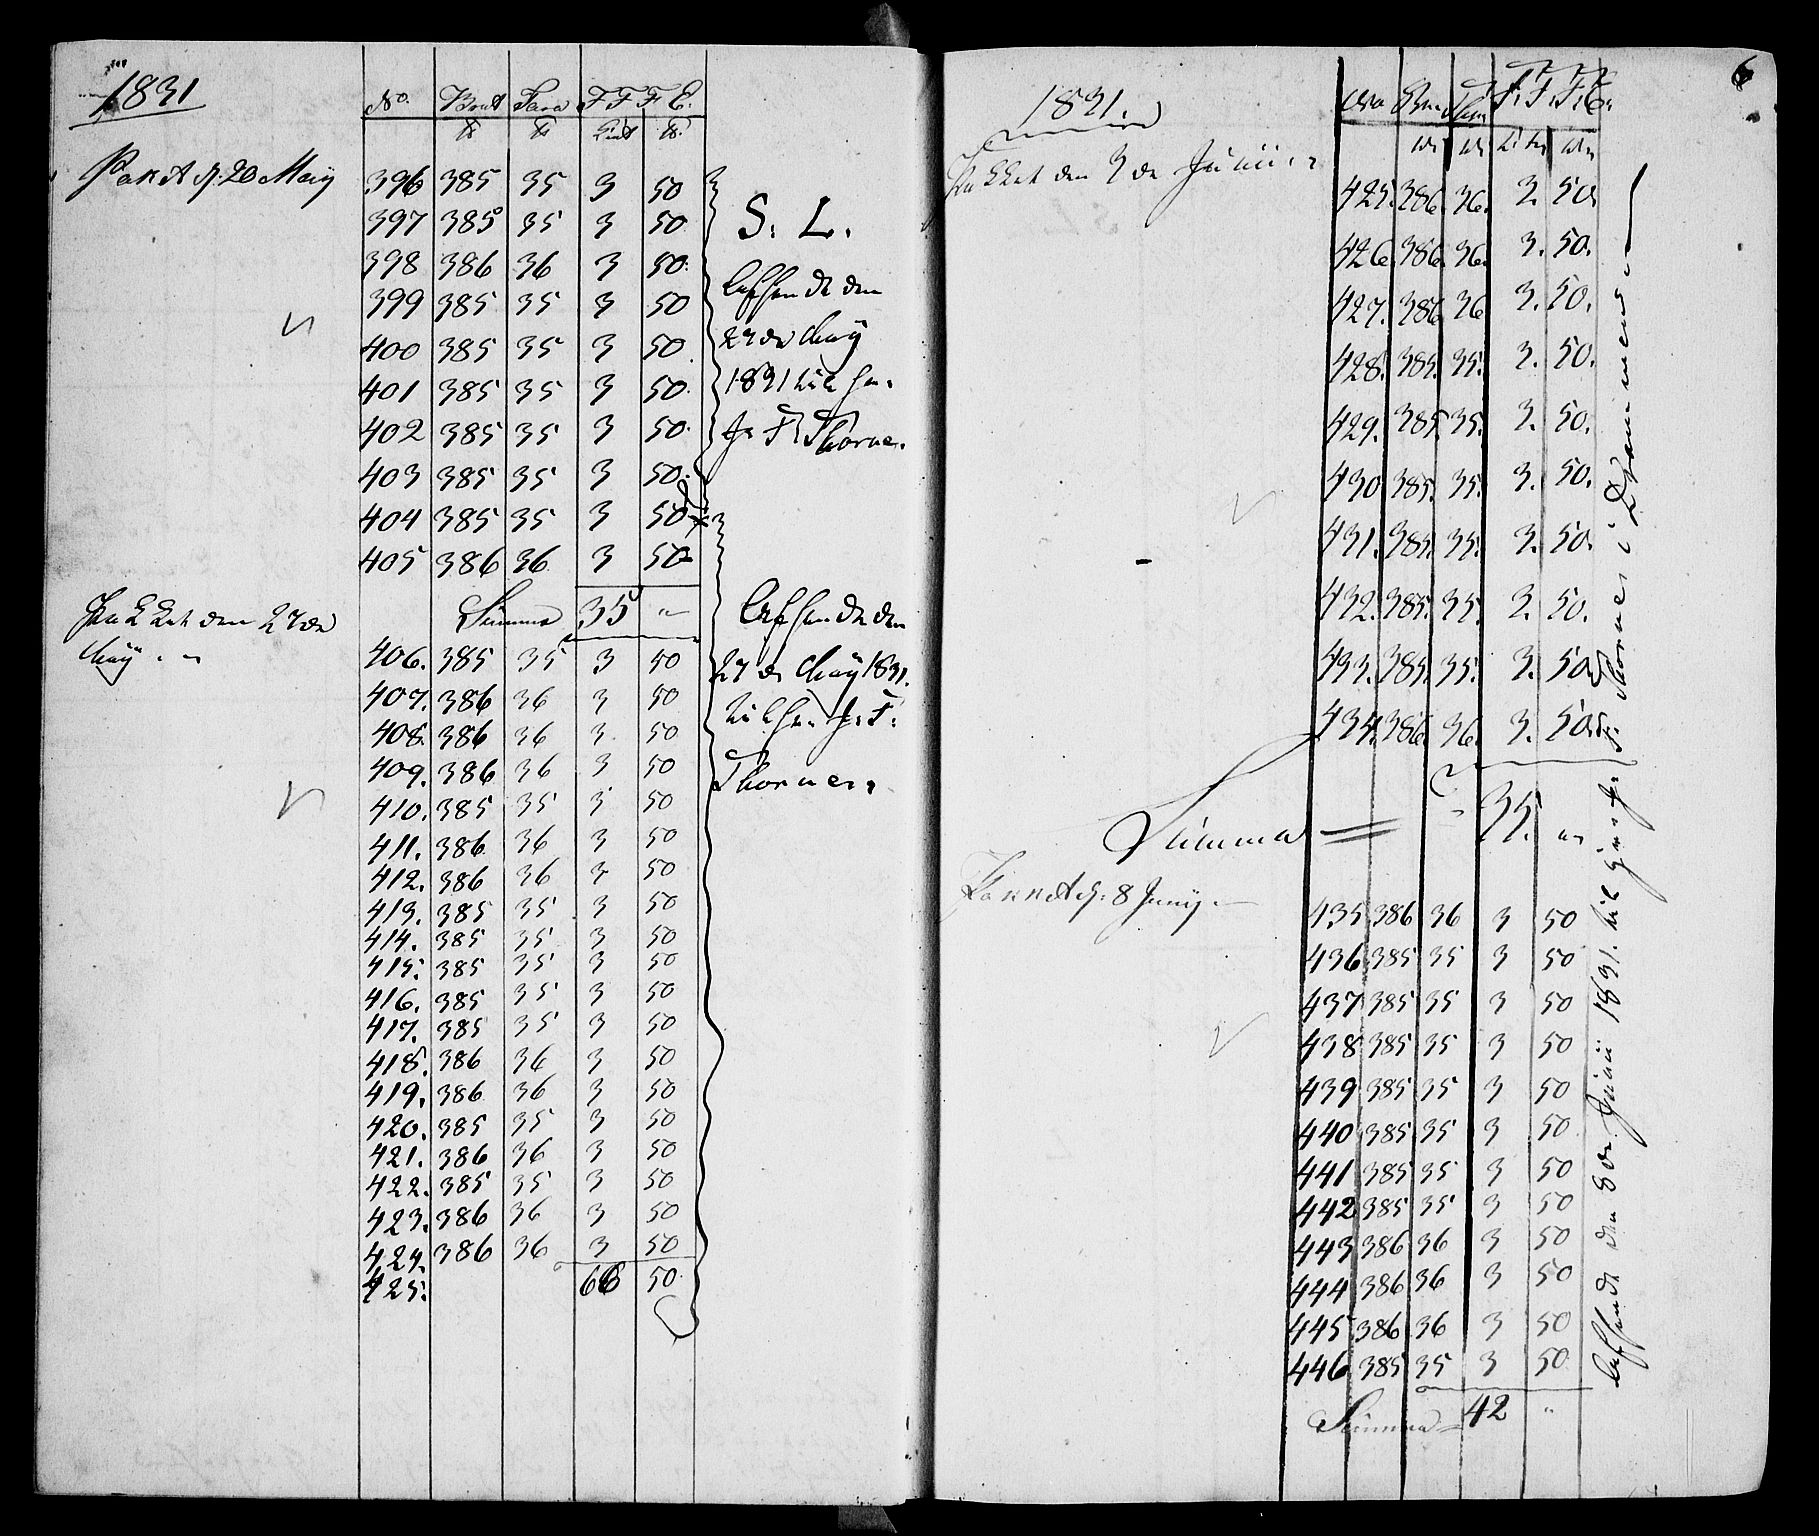 1831
No. Brut Tara F F F E.
℔ ℔ Cint ℔.
Pakt d. 20 Maij 396 385 35 3 50
397 385 35 3 50
S. L.
398 386 36 3 50
399 385 35 3 50
Afsendt den
400 385 35 3 50
27 de Maij
401 385 35 3 50
1831 til Hr.
402 385 35 3 50
J. F. Thorne.
403 385 35 3 50
404 385 35 3 50
405 386 36 3 50
Pakket den 27de Summa 35 "
Afsendt den
Maij
406. 385 35 3 50
27 de Maij 1831.
407. 386 36 3 50
til Hr. J. F.
408. 386 36 3 50
409. 386 36 3 50
Thorne.
410. 385 35 3 50
411. 386 36 3 50
412. 386 36 3 50
413. 385 35 3 50
414. 385 35 3 50
415. 385 35 3 50
416. 385 35 3 50
417. 385 35 3 50
418. 386 36 3 50
419. 386 36 3 50
420. 385 35 3 50
421. 386 36 3 50
422. 385 35 3 50
423. 386 36 3 50
424. 386 36 3 50
425. 66 50
6
1831.
F. F. F. E.
Pakket den 3 de Junii
425. 386. 36. 3. 50.
426. 386. 36. 3. 50.
427. 386 36 3. 50.
428. 385. 35. 3. 50.
429. 385. 35. 3. 50.
430 385. 35. 3. 50.
431. 385. 35. 3. 50.
432. 385. 35. 3. 50.
433. 385. 35. 3. 50.
434. 386. 36. 3. 50.
Summa 35. "
Pakket d. 8 Junij
435 386 36 3 50
436 385 35 3 50
437 385 35 3 50
438 385 35 3 50
439 385 35 3 50
440 385 35 3 50
441 385 35 3 50
442 385 35 3 50
443 386 36 3 50
444 386 36 3 50
445 386 36 3 50
446 385 35 3 50
Summa 42 "
Afsendt den 8 de Junii 1831. til Hr. J. F. Thorne i Drammen